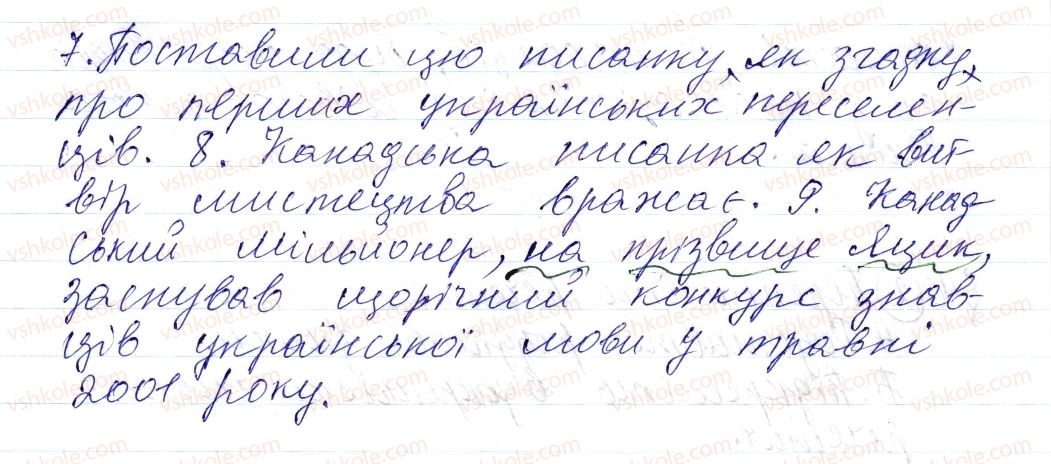 7. Поставили цю писанку, як згадку,
про перших українських переселен-
ців. 8. Канадська писанка як вит-
вір мистецтва вражає. 9. Канад
ський мільйонер, на прізвище Яцик,
заснував щорічний конкурс знав-
ців української мови у травні
2001 року.